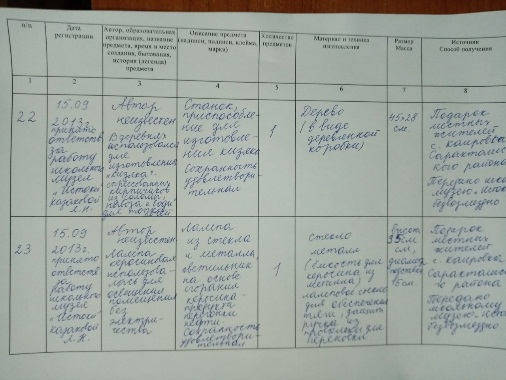 п/п
Дата
регистрации
Автор, образовательная
организация, название
предмета, время и место
создания, бытования,
история (легенда)
предмета
Описание предмета
(надписи, подписи, клейма,
марки)
Количество
предметов
Материал и техника
изготовления
Размер
Масса
Источник
Способ получения
1 2 3 4 5 6 7 8
22
15.09
2013г.
принято
ответств
за
работу
школьного
музея
"Истоки
Караковой
Л.Н.
Автор
неизвестен
В деревнях
использовали
для
изготовления
"кизяка"
Станок,
приспособле-
ние для
изготовле-
ния кизяка
Сохранность
удовлетвори-
тельная
1
Дерево
(в виде
деревянной
коробки)
45х28
см.
Подарок
местных
жителей
Саракташс
кого района
музею
безвозмездно
23
15.09
2013г.
принято
ответств
за
работу
школьного
музея
"Истоки
Караковой
Л.Н.
Автор
неизвестен
Лампа
керосиновая
использова-
лась для
освещения
помещения
без
электри-
чества
Лампа
из стекла
и металла,
светильник
на основе
сгорания
керосина -
продукта
перегонки
нефти
Сохранность
удовлетвори-
тельная
1
стекло
металл
(ёмкость для
керосина из
металла)
ламповое стекло
для обеспечения
тяги, защиты
ручка из
проволоки для
переноски
высот
35см
см,
диаметр
15см.
Подарок
местных
жителей
Саракташс
к района
Передано
школьному
музею
безвозмездно